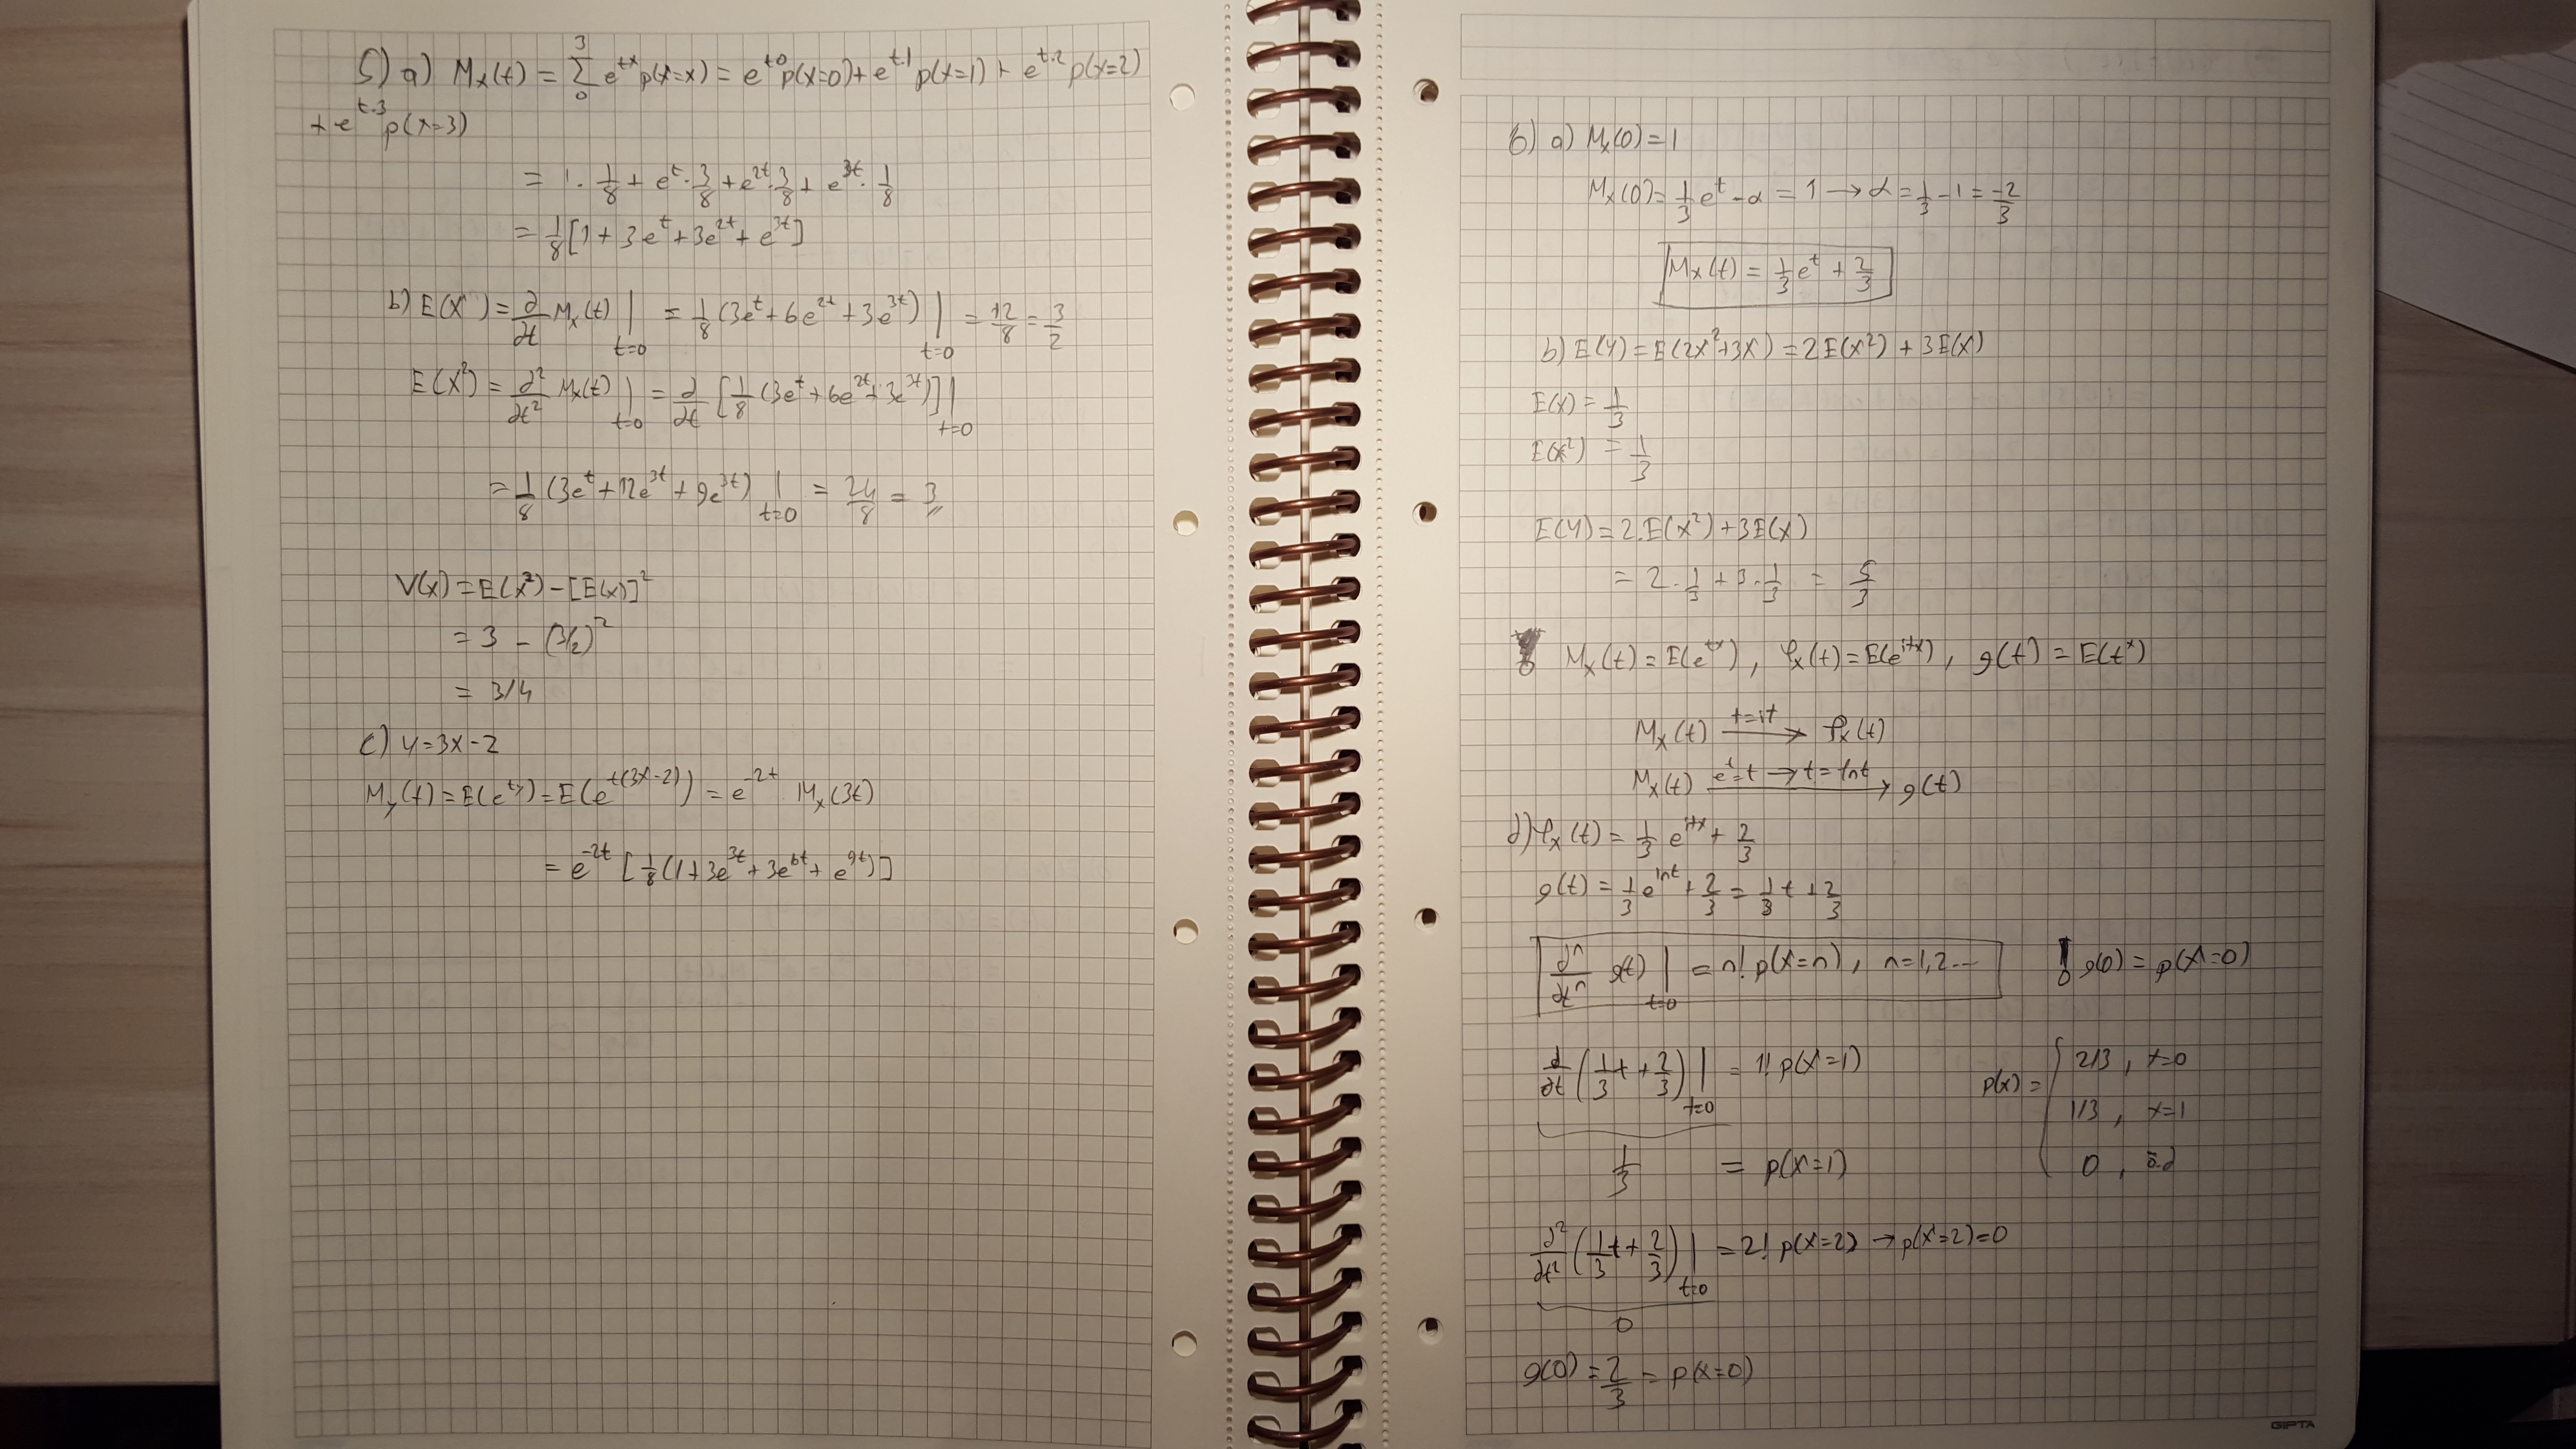 5) a) Mx(t) = 3 Σ 0 e^tx p(X=x) = e^t0 p(x=0) + e^t.1 p(x=1) + e^t.2 p(x=2)
+ e^t.3 p(x=3)
= 1 . 1/8 + e^t . 3/8 + e^2t . 3/8 + e^3t . 1/8
= 1/8 [1 + 3e^t + 3e^2t + e^3t]
b) E(X) = ∂/∂t Mx(t) | t=0 = 1/8 (3e^t + 6e^2t + 3e^3t) | t=0 = 12/8 = 3/2
E(X²) = ∂²/∂t² Mx(t) | t=0 = ∂/∂t [1/8 (3e^t + 6e^2t + 3e^3t)] | t=0
= 1/8 (3e^t + 12e^3t + 9e^3t) | t=0 = 24/8 = 3
V(x) = E(x²) - [E(x)]²
= 3 - (3/2)²
= 3/4
c) y = 3x - 2
My(t) = E(e^ty) = E(e^t(3x-2)) = e^-2t Mx(3t)
= e^-2t [1/8 (1 + 3e^3t + 3e^6t + e^9t)]
6) a) Mx(0) = 1
Mx(0) = 1/3 e^t - α = 1 → α = 1/3 - 1 = -2/3
Mx(t) = 1/3 e^t + 2/3
b) E(Y) = E(2x² + 3x) = 2E(x²) + 3E(x)
E(x) = 1/3
E(x²) = 1/3
E(Y) = 2.E(x²) + 3E(x)
= 2 . 1/3 + 3 . 1/3 = 5/3
! Mx(t) = E(e^tx) , φx(t) = E(e^itx) , g(t) = E(t^x)
Mx(t) t=it → φx(t)
Mx(t) e^t=t → t=lnt → g(t)
d) φx(t) = 1/3 e^itx + 2/3
g(t) = 1/3 e^lnt + 2/3 = 1/3 t + 2/3
∂^n/∂t^n g(t) | t=0 = n! p(X=n) , n=1,2... ! g(0) = p(X=0)
∂/∂t (1/3 t + 2/3) | t=0 = 1! p(X=1)
p(x) = { 2/3 , x=0
1/3 , x=1
0 , ö.d
1/3 = p(X=1)
∂²/∂t² (1/3 t + 2/3) | t=0 = 2! p(X=2) → p(X=2)=0
0
g(0) = 2/3 = p(X=0)
GIPTA